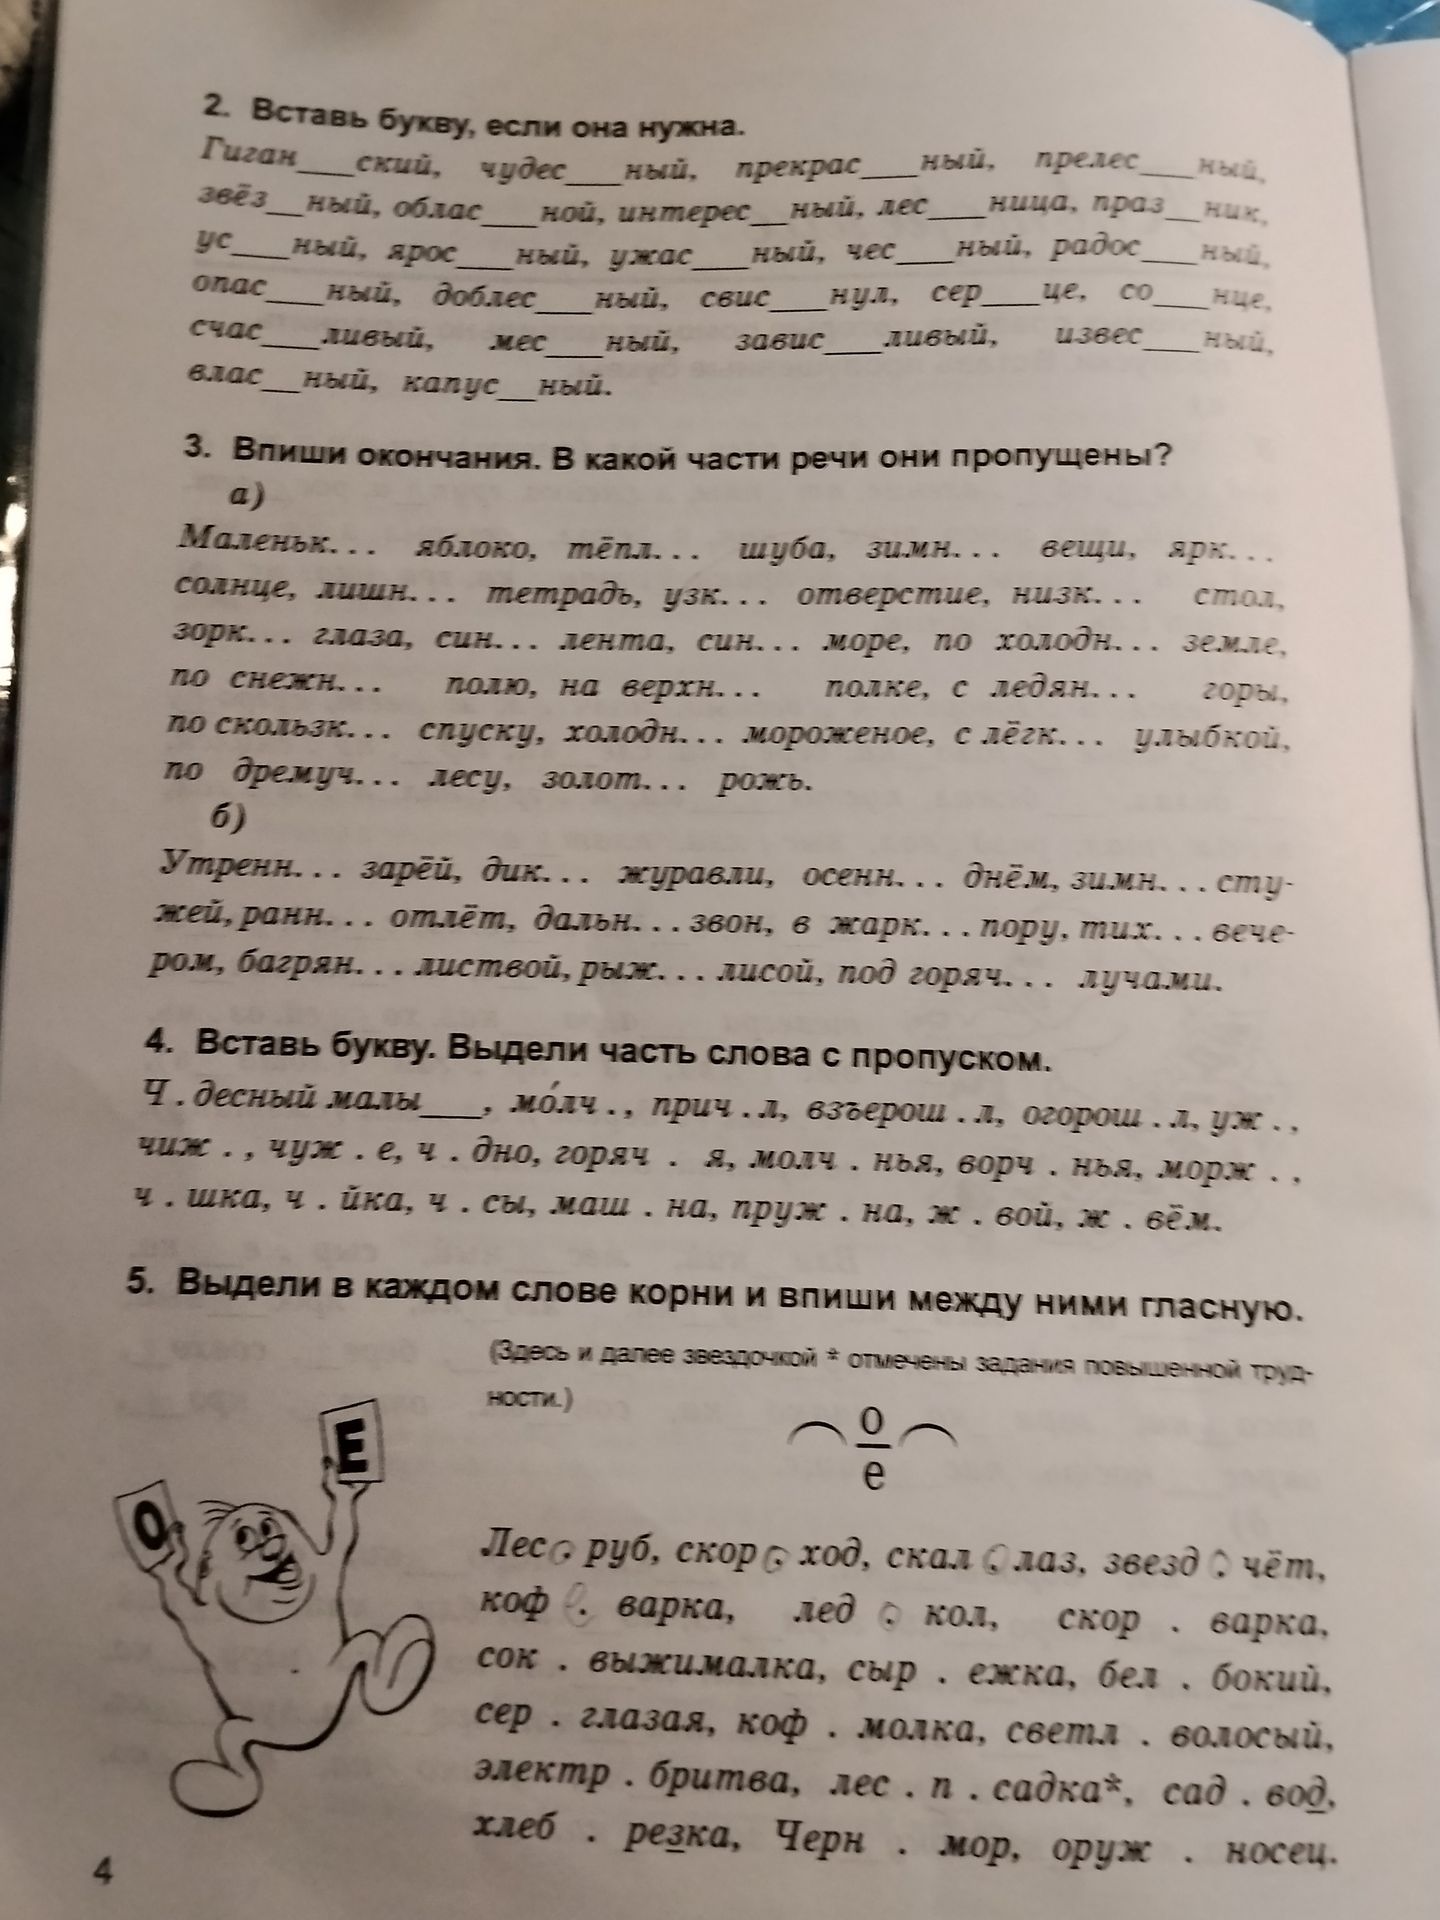 2. Вставь букву, если она нужна.
Гиган___ский, чудес___ный, прекрас___ный, прелес___ный,
звёз__ный, облас___ной, интерес__ный, лес___ница, праз__ник,
ус___ный, ярос___ный, ужас___ный, чес___ный, радос___ный,
опас___ный, доблес___ный, свис___нул, сер___це, со___нце,
счас___ливый, мес___ный, завис___ливый, извес___ный,
влас__ный, капус__ный.
3. Впиши окончания. В какой части речи они пропущены?
а)
Маленьк... яблоко, тёпл... шуба, зимн... вещи, ярк...
солнце, лишн... тетрадь, узк... отверстие, низк... стол,
зорк... глаза, син... лента, син... море, по холодн... земле,
по снежн... полю, на верхн... полке, с ледян... горы,
по скользк... спуску, холодн... мороженое, с лёгк... улыбкой,
по дремуч... лесу, золот... рожь.
б)
Утренн... зарёй, дик... журавли, осенн... днём, зимн... сту-
жей, ранн... отлёт, дальн... звон, в жарк... пору, тих... вече-
ром, багрян... листвой, рыж... лисой, под горяч... лучами.
4. Вставь букву. Выдели часть слова с пропуском.
Ч . десный малы___, мо́лч . , прич . л, взъерош . л, огорош . л, уж . ,
чиж . , чуж . е, ч . дно, горяч . я, молч . нья, ворч . нья, морж . ,
ч . шка, ч . йка, ч . сы, маш . на, пруж . на, ж . вой, ж . вём.
5. Выдели в каждом слове корни и впиши между ними гласную.
(Здесь и далее звездочкой * отмечены задания повышенной труд-
ности.)
о
е
Е
О
Лес . руб, скор . ход, скал . лаз, звезд . чёт,
коф . варка, лед . кол, скор . варка,
сок . выжималка, сыр . ежка, бел . бокий,
сер . глазая, коф . молка, светл . волосый,
электр . бритва, лес . п . садка*, сад . вод,
хлеб . резка, Черн . мор, оруж . носец.
4